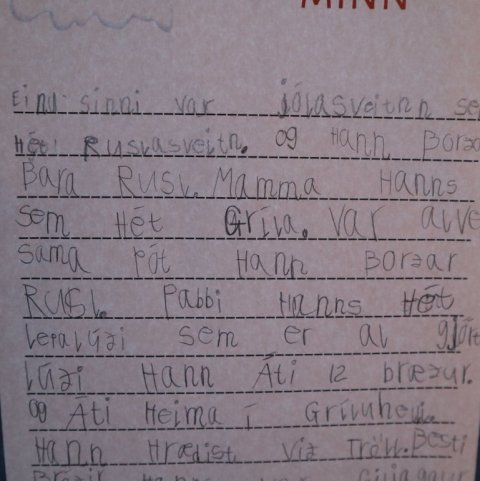 MINN
Einu sinni var jólasveinn se
Hét Ruslasveinn. og Hann Borða
Bara RUSL. Mamma Hanns
sem Hét Gríla. var alve
sama þót Hann Borðar
RUSL. Pabbi Hanns Hét
Lepalúði sem er al gjört
lúði Hann Áti 12 bræður.
og Áti Heima í Gríluheli.
Hann Hræðist við Tröll. Besti
Bróðir Hanns var Giljagaur